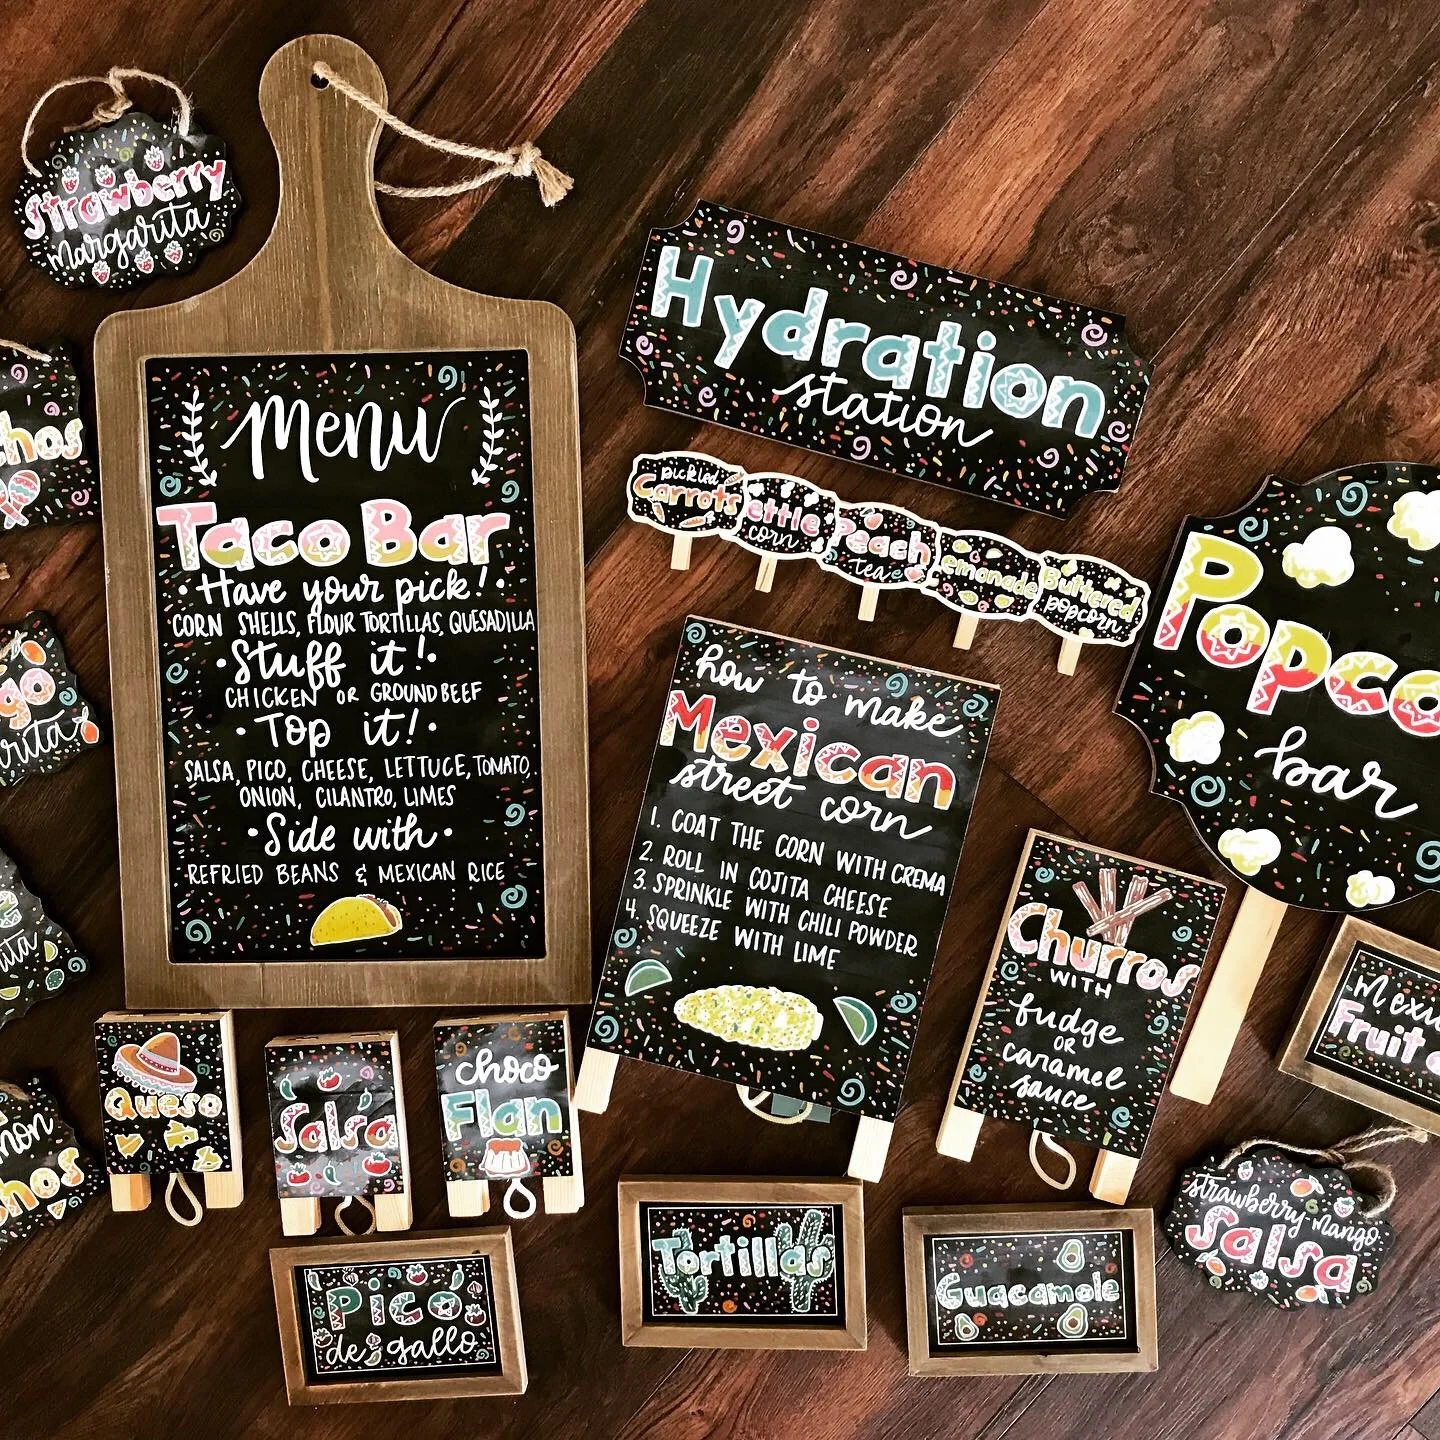 Strawberry
margarita
Menu
Taco Bar
• Have your pick! •
CORN SHELLS, FLOUR TORTILLAS, QUESADILLA
• Stuff it! •
CHICKEN OR GROUND BEEF
• Top it! •
SALSA, PICO, CHEESE, LETTUCE, TOMATO,
ONION, CILANTRO, LIMES
• Side with •
REFRIED BEANS & MEXICAN RICE
Hydration
station
pickled
Carrots
Kettle
corn
Peach
tea
Lemonade
Buttered
popcorn
how to make
Mexican
street corn
1. COAT THE CORN WITH CREMA
2. ROLL IN COJITA CHEESE
3. SPRINKLE WITH CHILI POWDER
4. SQUEEZE WITH LIME
Popco
bar
Churros
WITH
fudge
OR
caramel
sauce
Mexic
Fruit
Queso
Salsa
choco
Flan
Pico
de gallo
Tortillas
Guacamole
strawberry-mango
Salsa
chos
go
rita
rita
mon
hos